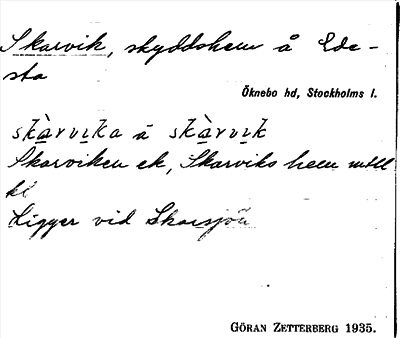 Skarvik, skyddshem å Ede-
sta
Öknebo hd, Stockholms l.
skàrvıka ā skàrvık
Skarviken ek, Skarviks hem
kl
Ligger vid Skarsjön
GÖRAN ZETTERBERG 1935.